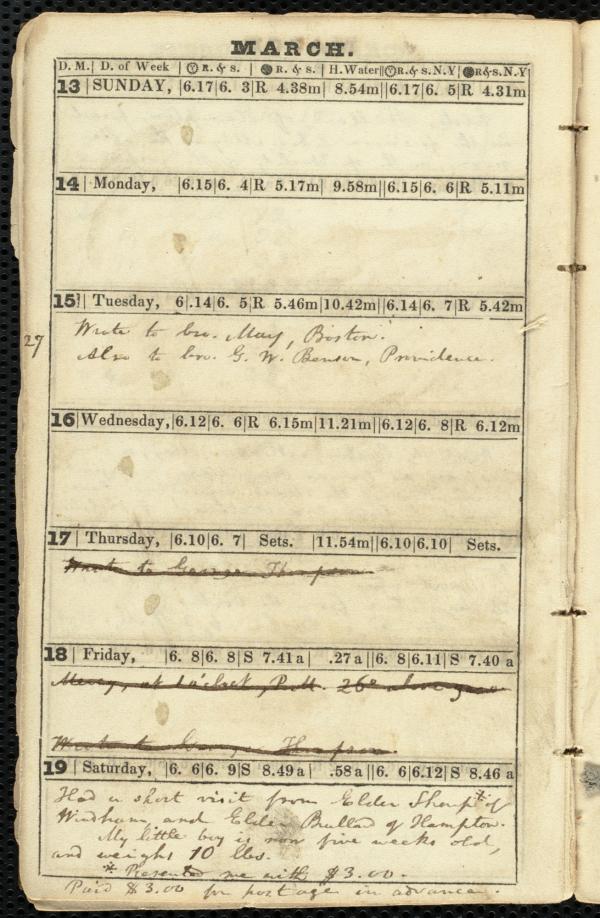 MARCH.
D. M.| D. of Week | R. & s. | R. & s. | H. Water|| R. & s. N.Y| R & s. N.Y
13 | SUNDAY, |6.17|6. 3|R 4.38m| 8.54m||6.17|6. 5|R 4.31m
14 | Monday, |6.15|6. 4|R 5.17m| 9.58m||6.15|6. 6|R 5.11m
15 | Tuesday, 6|.14|6. 5|R 5.46m|10.42m||6.14|6. 7|R 5.42m
Wrote to bro. May, Boston.
27
Also to bro. G. W. Benson, Providence.
16|Wednesday,|6.12|6. 6|R 6.15m|11.21m||6.12|6. 8|R 6.12m
17 | Thursday, |6.10|6. 7| Sets. |11.54m||6.10|6.10| Sets.
Wrote to George Thompson
18 | Friday, |6. 8|6. 8|S 7.41 a| .27 a||6. 8|6.11|S 7.40 a
at 1 o'clock, P.M. 26°
Wrote to George Thompson.
19 | Saturday, |6. 6|6. 9|S 8.49 a| .58 a||6. 6|6.12|S 8.46 a
Had a short visit from Elder Sharp* of
Windham, and Elder Bullard of Hampton.
My little boy is now five weeks old,
and weighs 10 lbs.
* Presented me with $3.00.
Paid $3.00 for postage in advance.